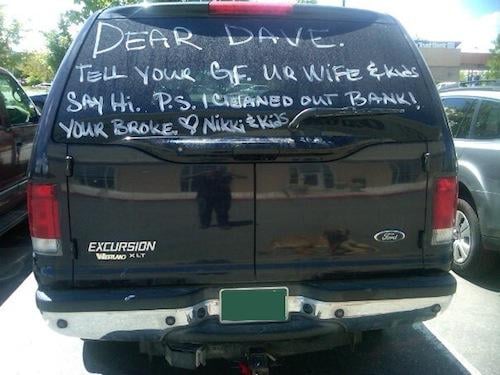 DEAR DAVE.
TELL YOUR G.F. UR WIFE & KidS
SAY Hi. P.S. I CLEANED OUT BANK!!
YOUR BROKE. ♡ Nikki & KidS
EXCURSION
XLT
Ford